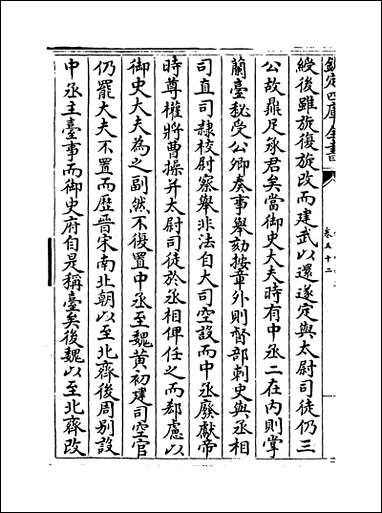 欽定四庫全書
卷五十二
綬後雖旋復旋改而建武以還遂定與太尉司徒仍三
公故鼎足承君矣當御史大夫時有中丞二在內則掌
蘭臺秘受公卿奏事舉劾按章外則督部刺史與丞相
司直司隸校尉察舉非法自大司空設而中丞廢獻帝
時尊權將曹操并太尉司徒於丞相俾任之而郗慮以
御史大夫為之副然不復置中丞至魏黃初建司空官
仍罷大夫不置而歷晉宋南北朝以至北齊後周別設
中丞主臺事而御史府自是稱臺矣後魏以至北齊改